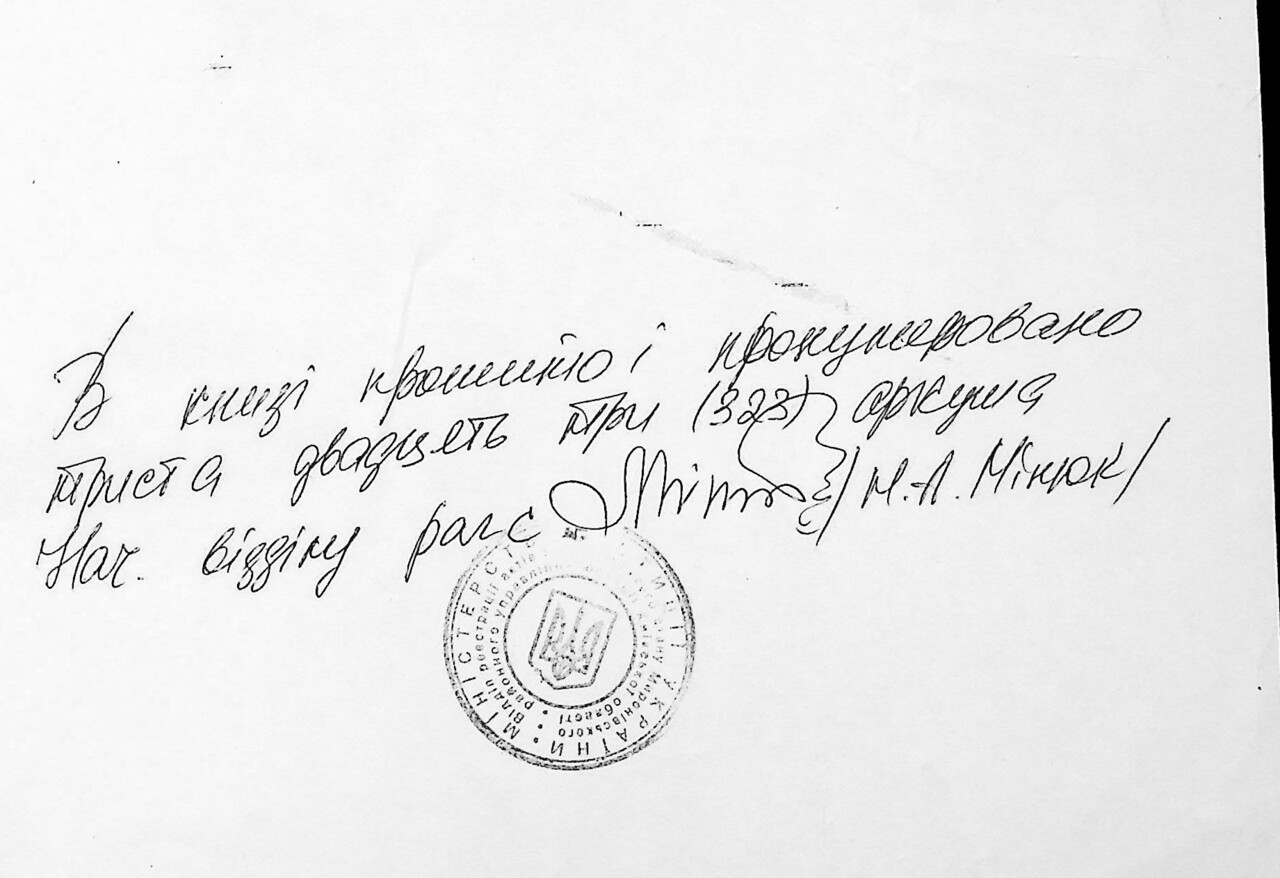 В книзі прошито і пронумеровано
триста двадцять три (323) аркуша
Нач. відділу рагс /М.А. Мінюк/
МІНІСТЕРСТ ЮСТИЦІЇ УКРАЇНИ
Відділ реєстрації актів Миронівського
районного управління Київської області